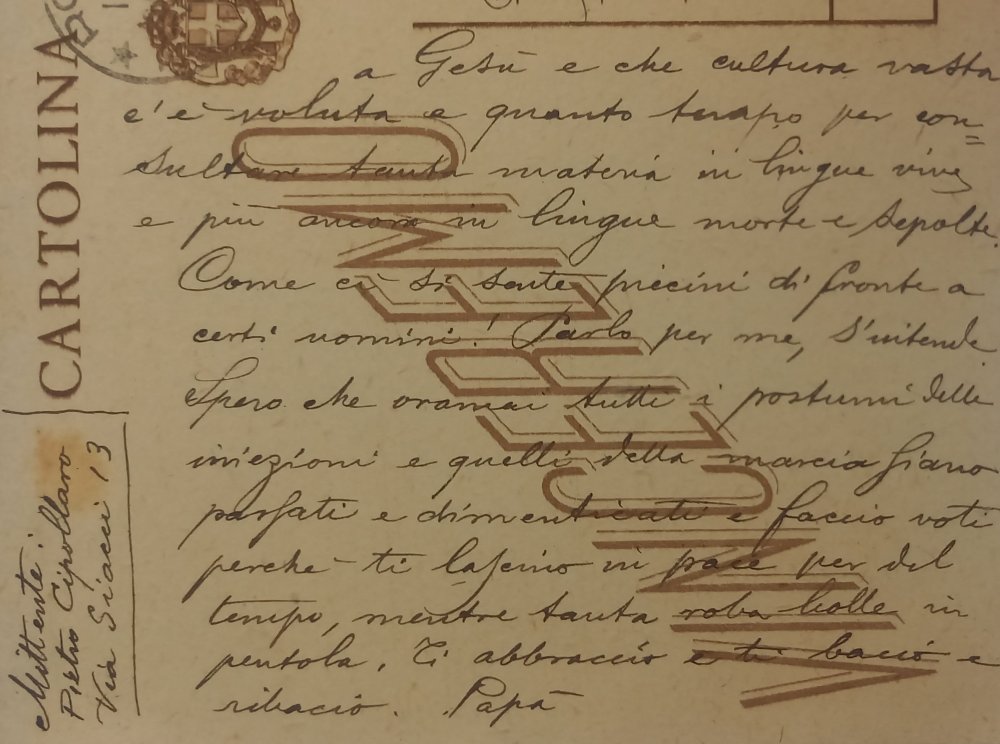 a Gesù e che cultura vasta
c'è voluta e quanto tempo per con=
sultare tanta materia in lingue vive
e più ancora in lingue morte e sepolte.
Come ci si sente piccini di fronte a
certi uomini! Parlo per me, s'intende.
Spero che oramai tutti i postumi delle
iniezioni e quelli della marcia siano
passati e dimenticati e faccio voti
perchè ti lascino in pace per del
tempo, mentre tanta roba bolle in
pentola. Ti abbraccio e ti bacio e
ribacio. Papà
CARTOLINA
VINCEREMO
Mittente:
Pietro Cipollaro
Via Siacci 13